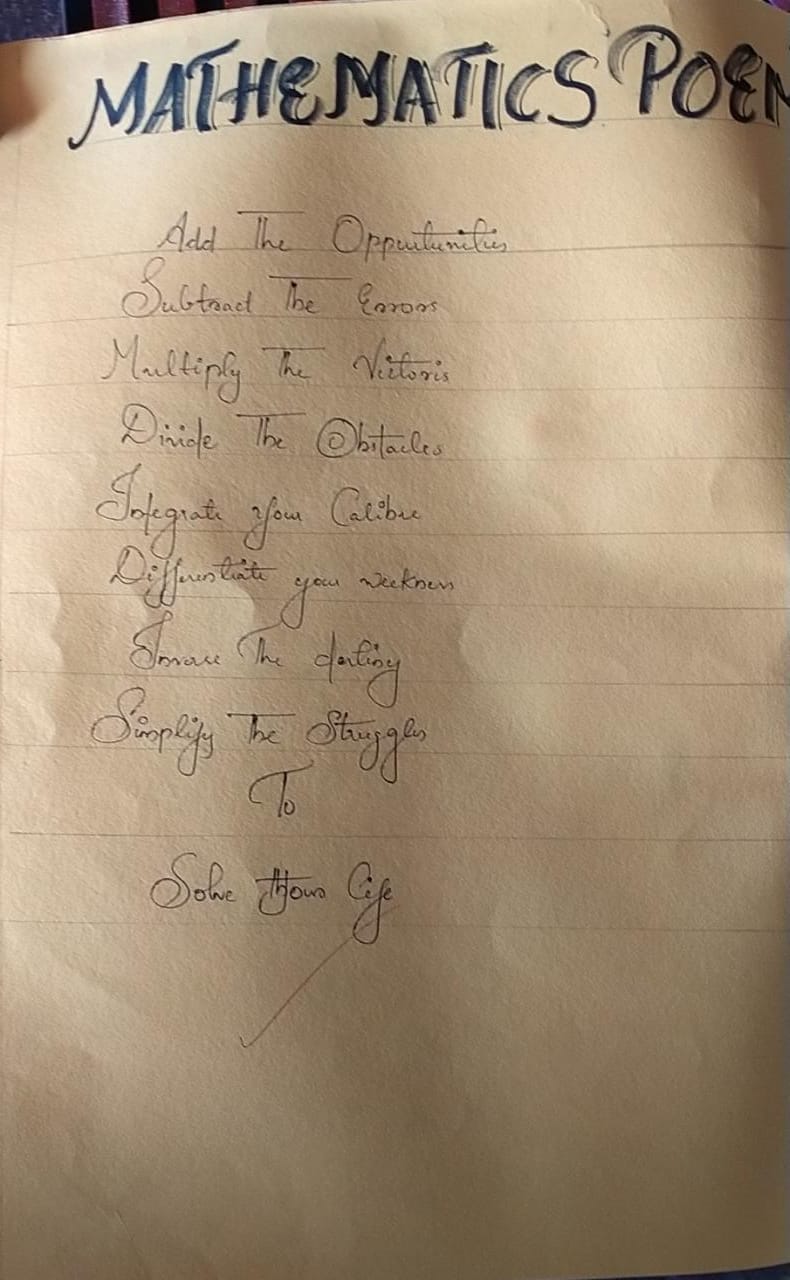 MATHEMATICS POEM
Add The Oppurtunities
Subtract The Errors
Multiply The Victoris
Divide The Obstacles
Integrate your Calibre
Differentiate your weekness
The destiny
Simplify The Struggles
To
Solve Your Life